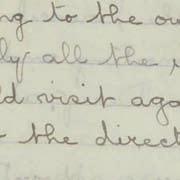 ng to the ou
ly all the
ld visit aga
the direct